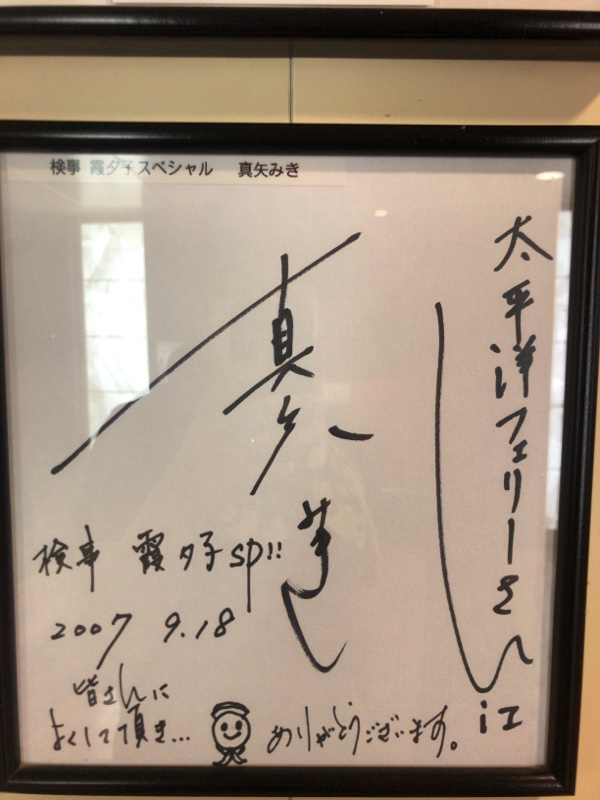 検事 霞夕子スペシャル 真矢みき
太平洋フェリーさん江
真矢みき
検事 霞夕子SP!!
2007 9.18
皆さんに
よくして頂き...
ありがとうございます。